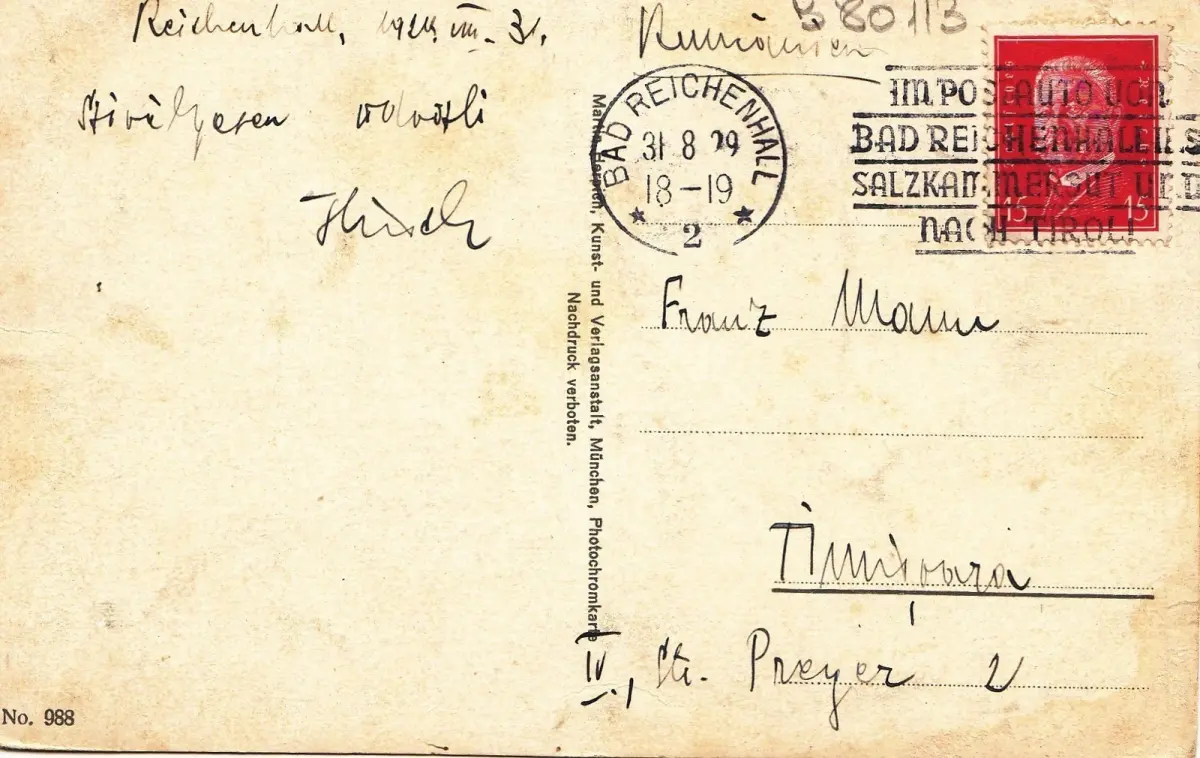 Reichenhall, 1929. VIII. 31.
Szivélyesen üdvözli
Hirsch
Rumänien
B 80113
BAD REICHENHALL
31 8 29
18-19
2
IM POSTAUTO VON
BAD REICHENHALL INS
SALZKAMMERGUT UND
NACH TIROL!
15 15
Martin Herpich, Kunst- und Verlagsanstalt, München, Photochromkarte
Nachdruck verboten.
Franz Mann
Timișoara
IV., Str. Preyer 2
No. 988